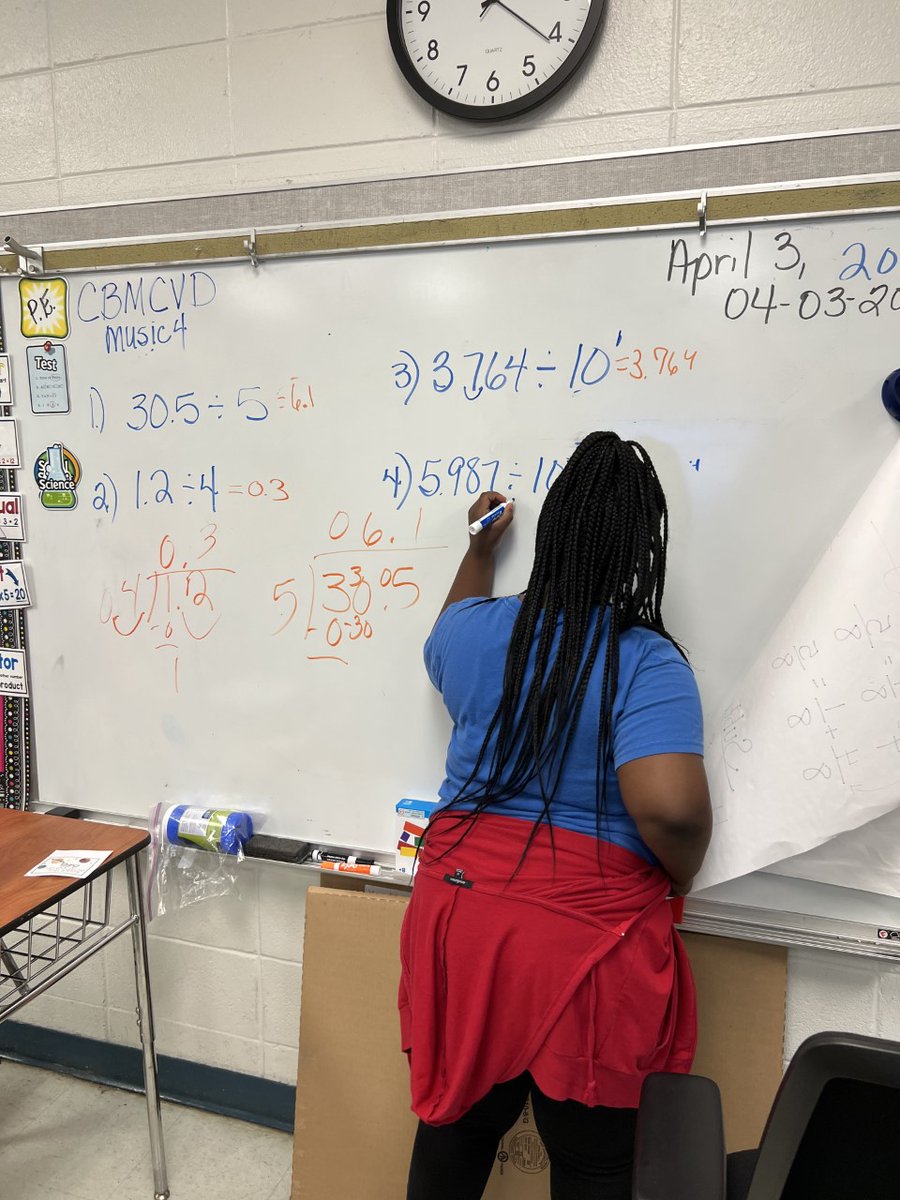 9
8
7
6
5
4
QUARTZ
April 3, 20
04-03-20
P.E.
CBMCVD
music 4
Test
1.) 30.5 ÷ 5 = 6.1
3) 3 764 ÷ 10¹ = 3.764
Science
2.) 1.2 ÷ 4 = 0.3
4) 5.987 ÷ 10
0.3
4 1.2
-0
1
06.1
5 30.5
-0-30
ual
= 3 + 2
x5 = 20
tor
product